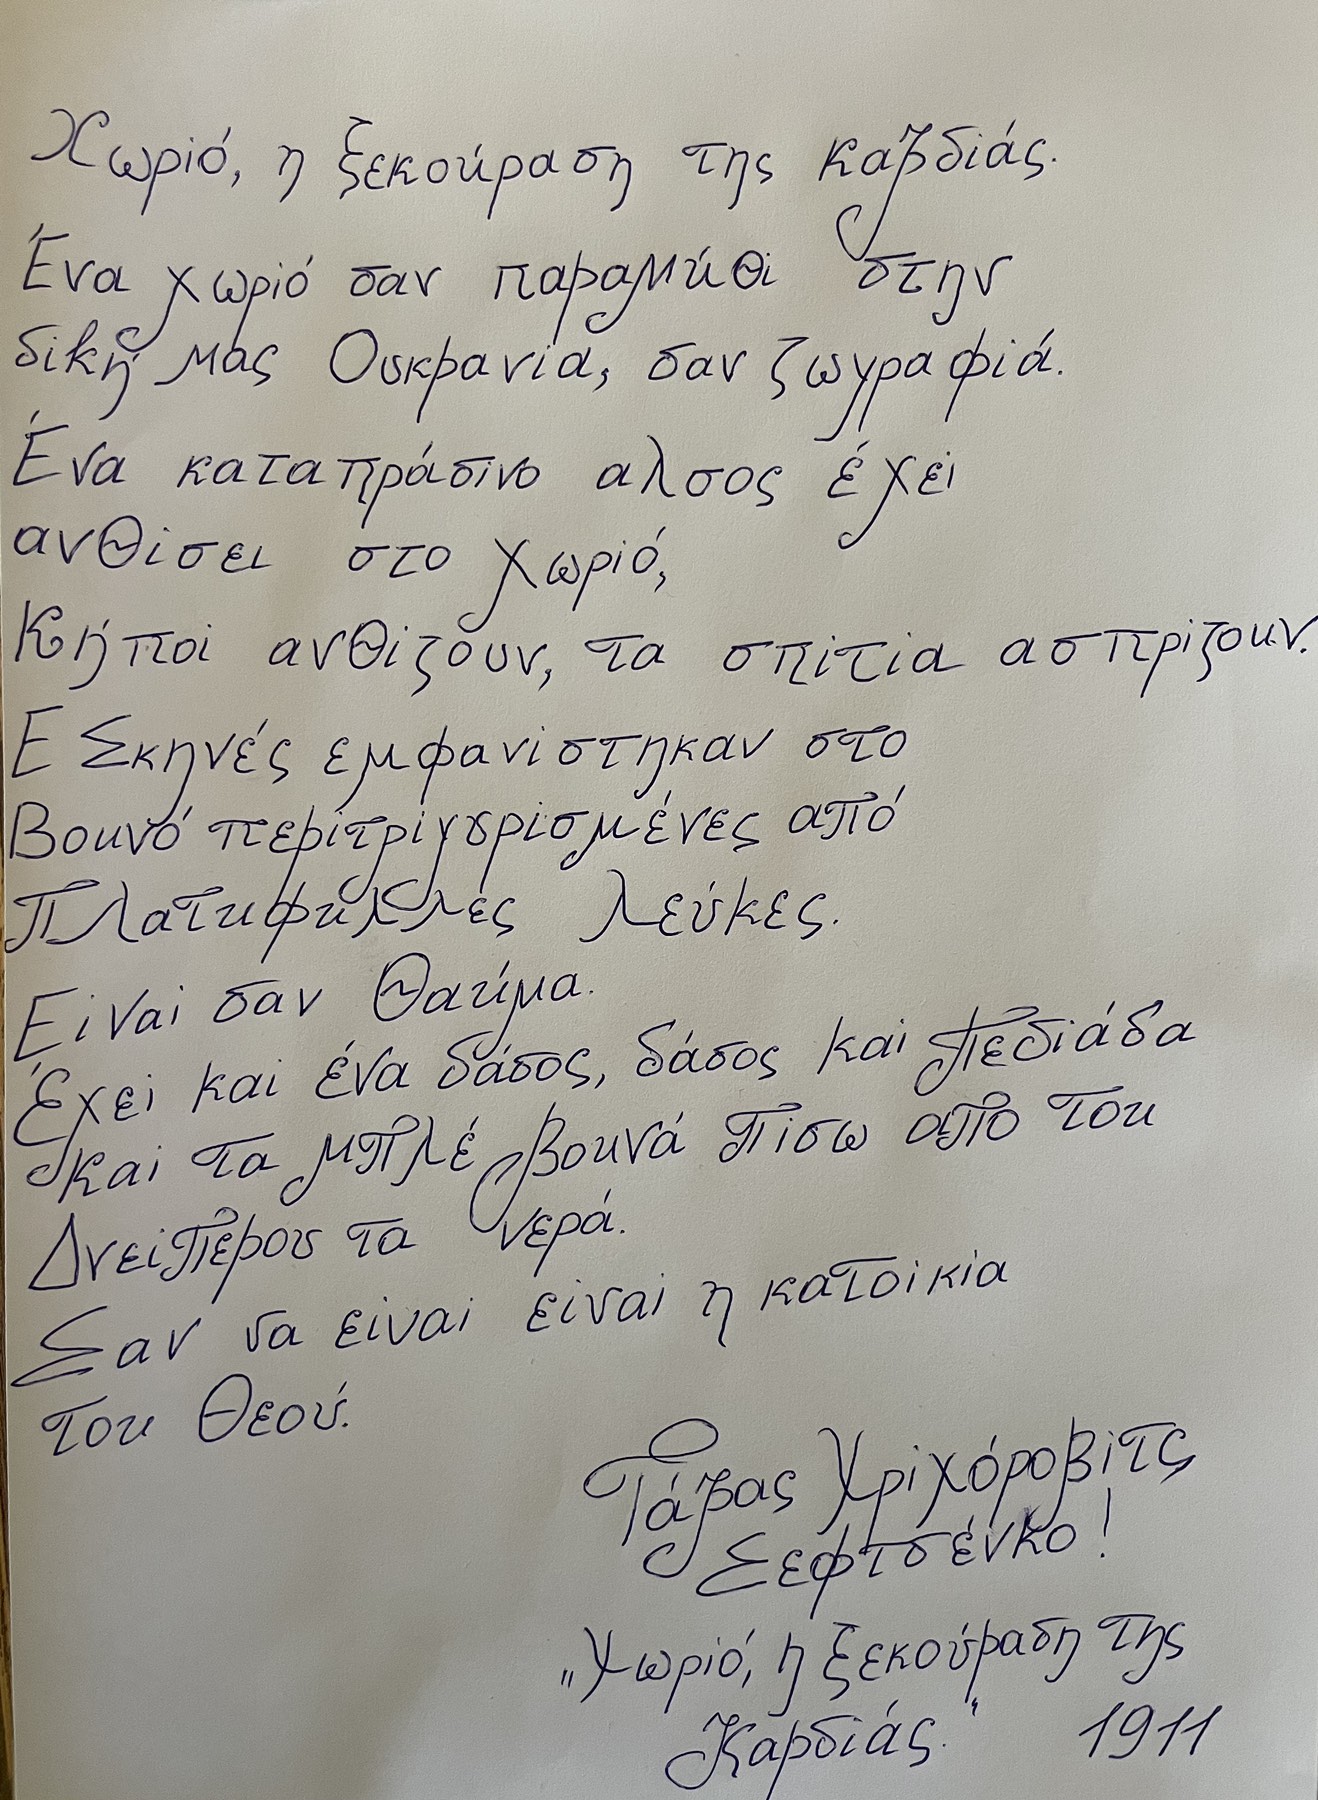 Χωριό, η ξεκούραση της καρδιάς.
Ένα χωριό σαν παραμύθι στην
δική μας Ουκρανία, σαν ζωγραφιά.
Ένα καταπράσινο αλσος έχει
ανθίσει στο χωριό,
Κήποι ανθίζουν, τα σπίτια ασπρίζουν.
Ε Σκηνές εμφανίστηκαν στο
Βουνό περιτριγυρισμένες από
Πλατυφυλλες λεύκες.
Είναι σαν Θαύμα.
Έχει και ένα δάσος, δάσος και πεδιάδα
και τα μπλέ βουνά πίσω από του
Δνείπερου τα νερά.
Σαν να είναι είναι η κατοικία
του Θεού.
Τάρας Χριχόροβιτς
Σεφτσένκο!
„Χωριό, η ξεκούραση της
Καρδιάς." 1911